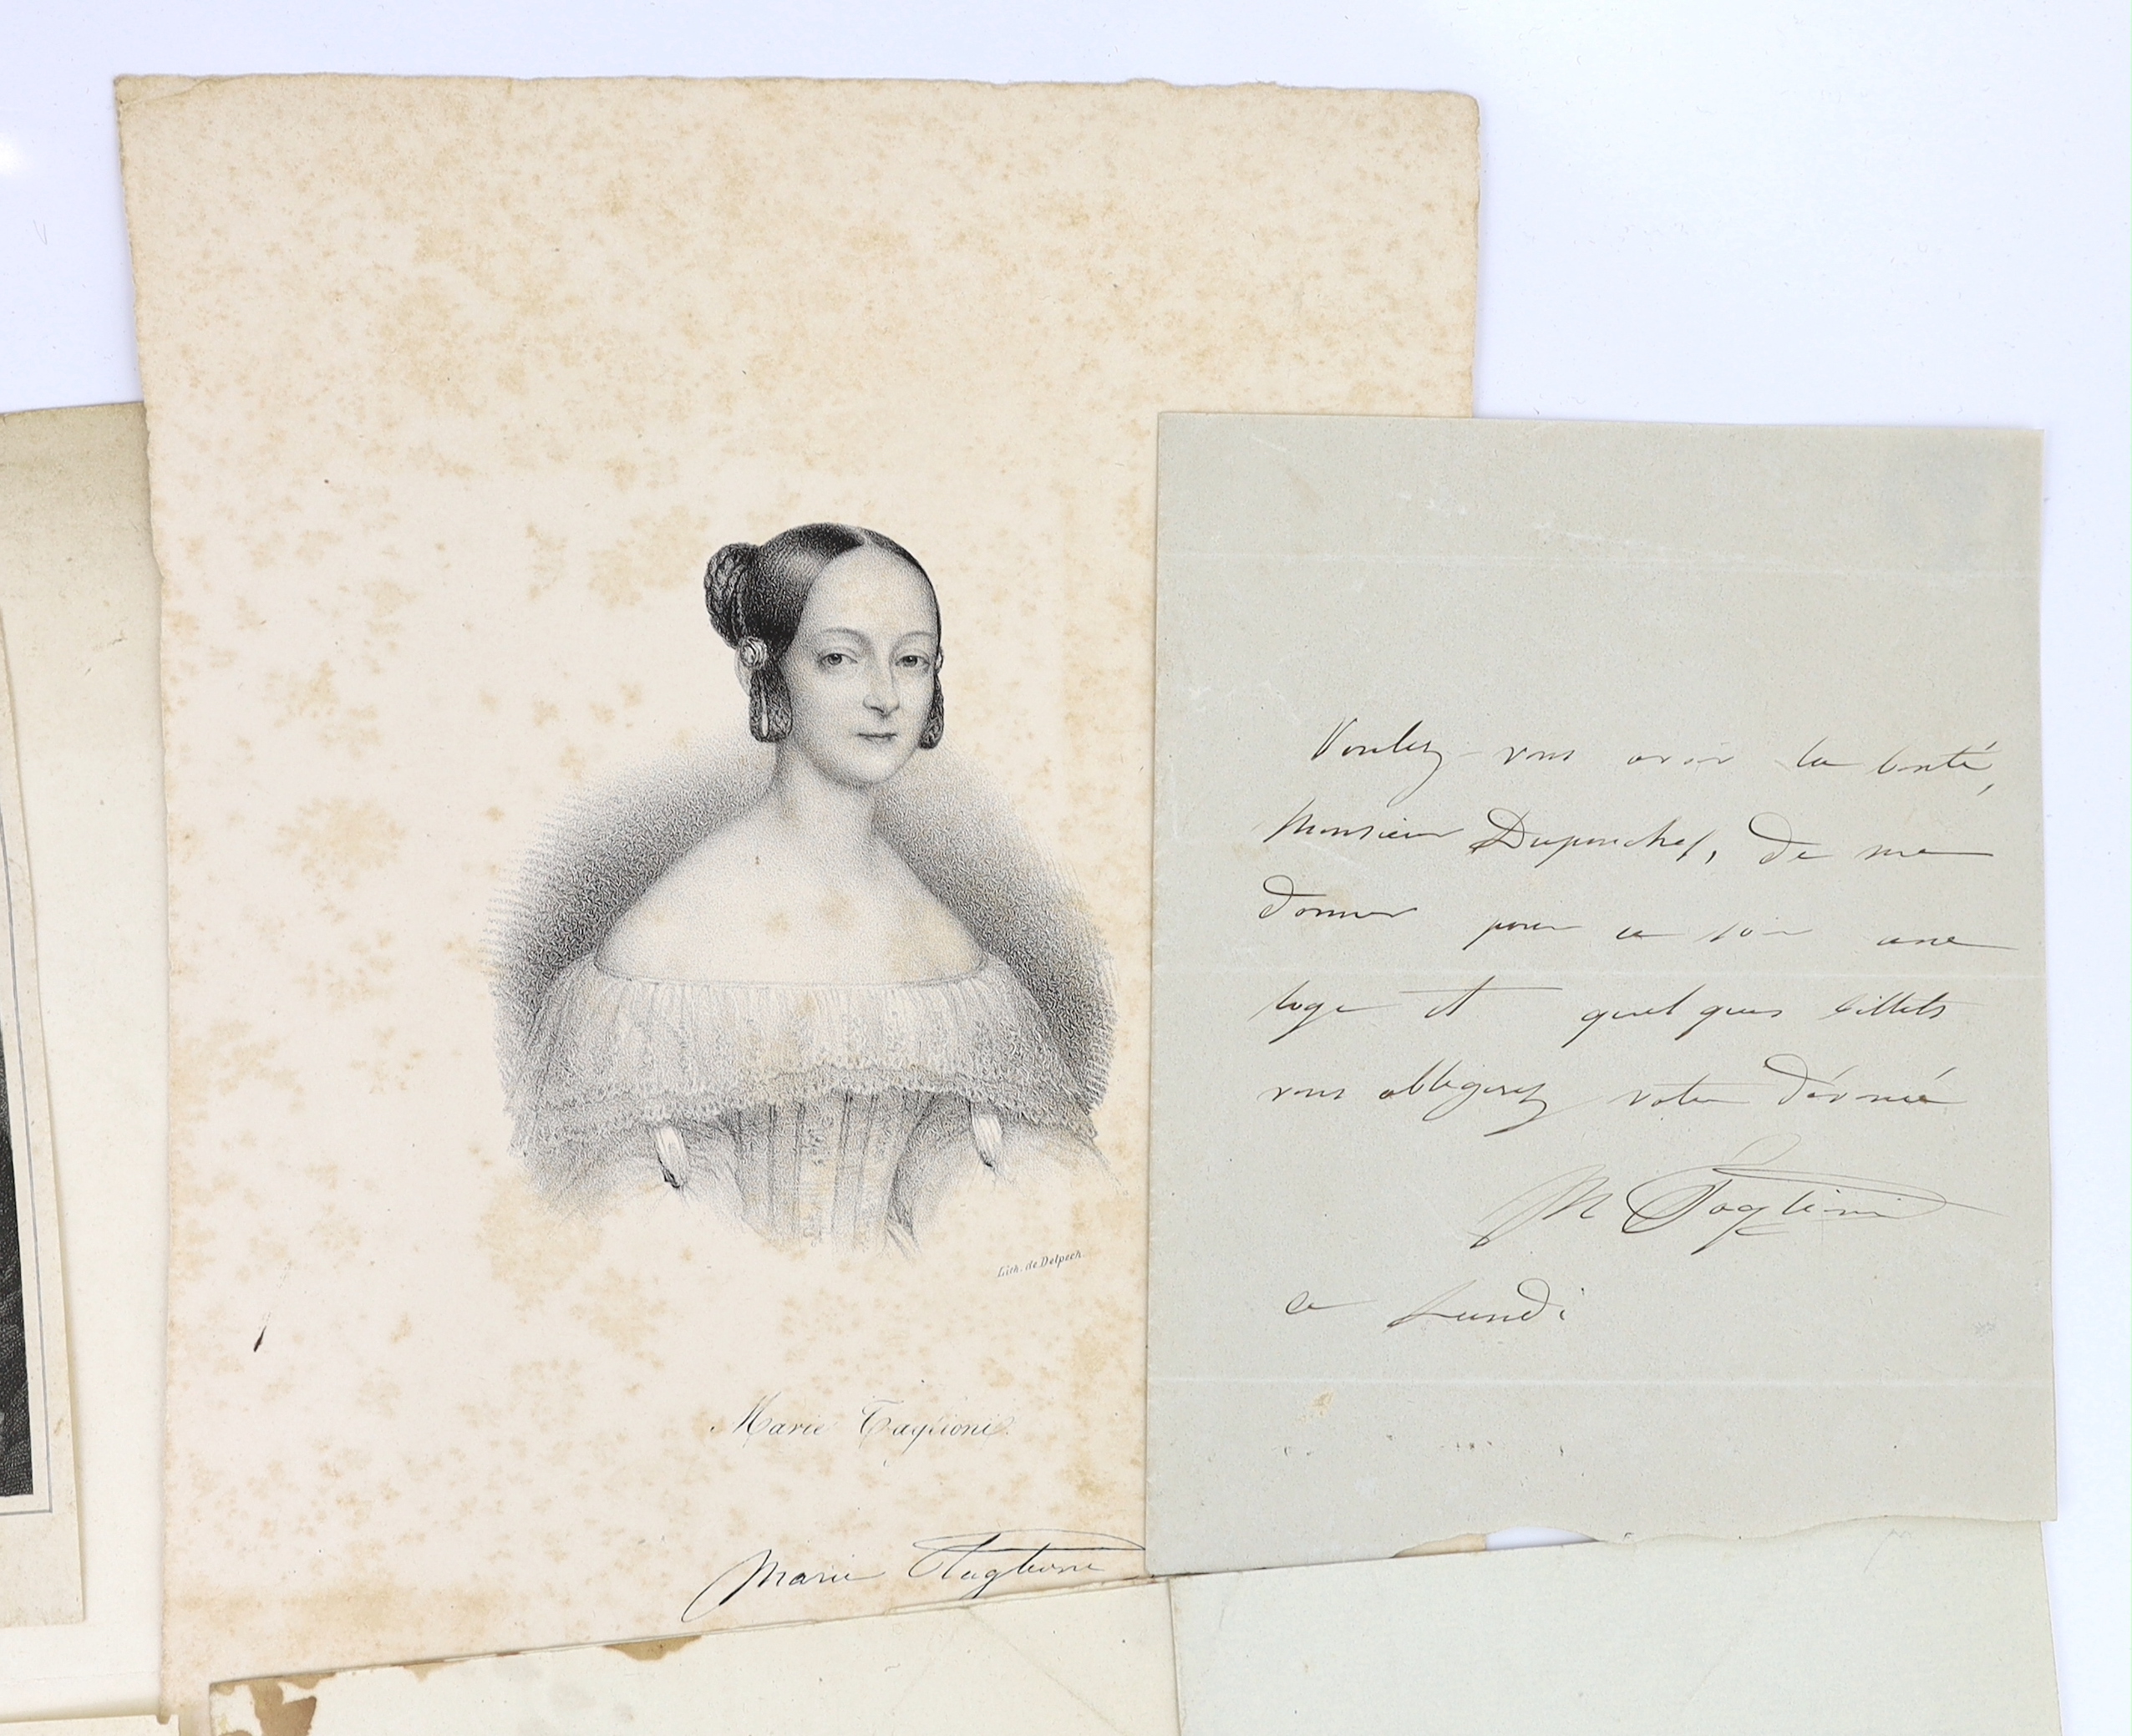 Lith. de Delpech.
Marie Taglioni.
Marie Taglioni
Voulez-vous avoir la bonté,
Monsieur Duponchel, de me
donner pour ce soir une
loge et quelques billets
vous obligerez votre dévouée
M Taglioni
ce Lundi